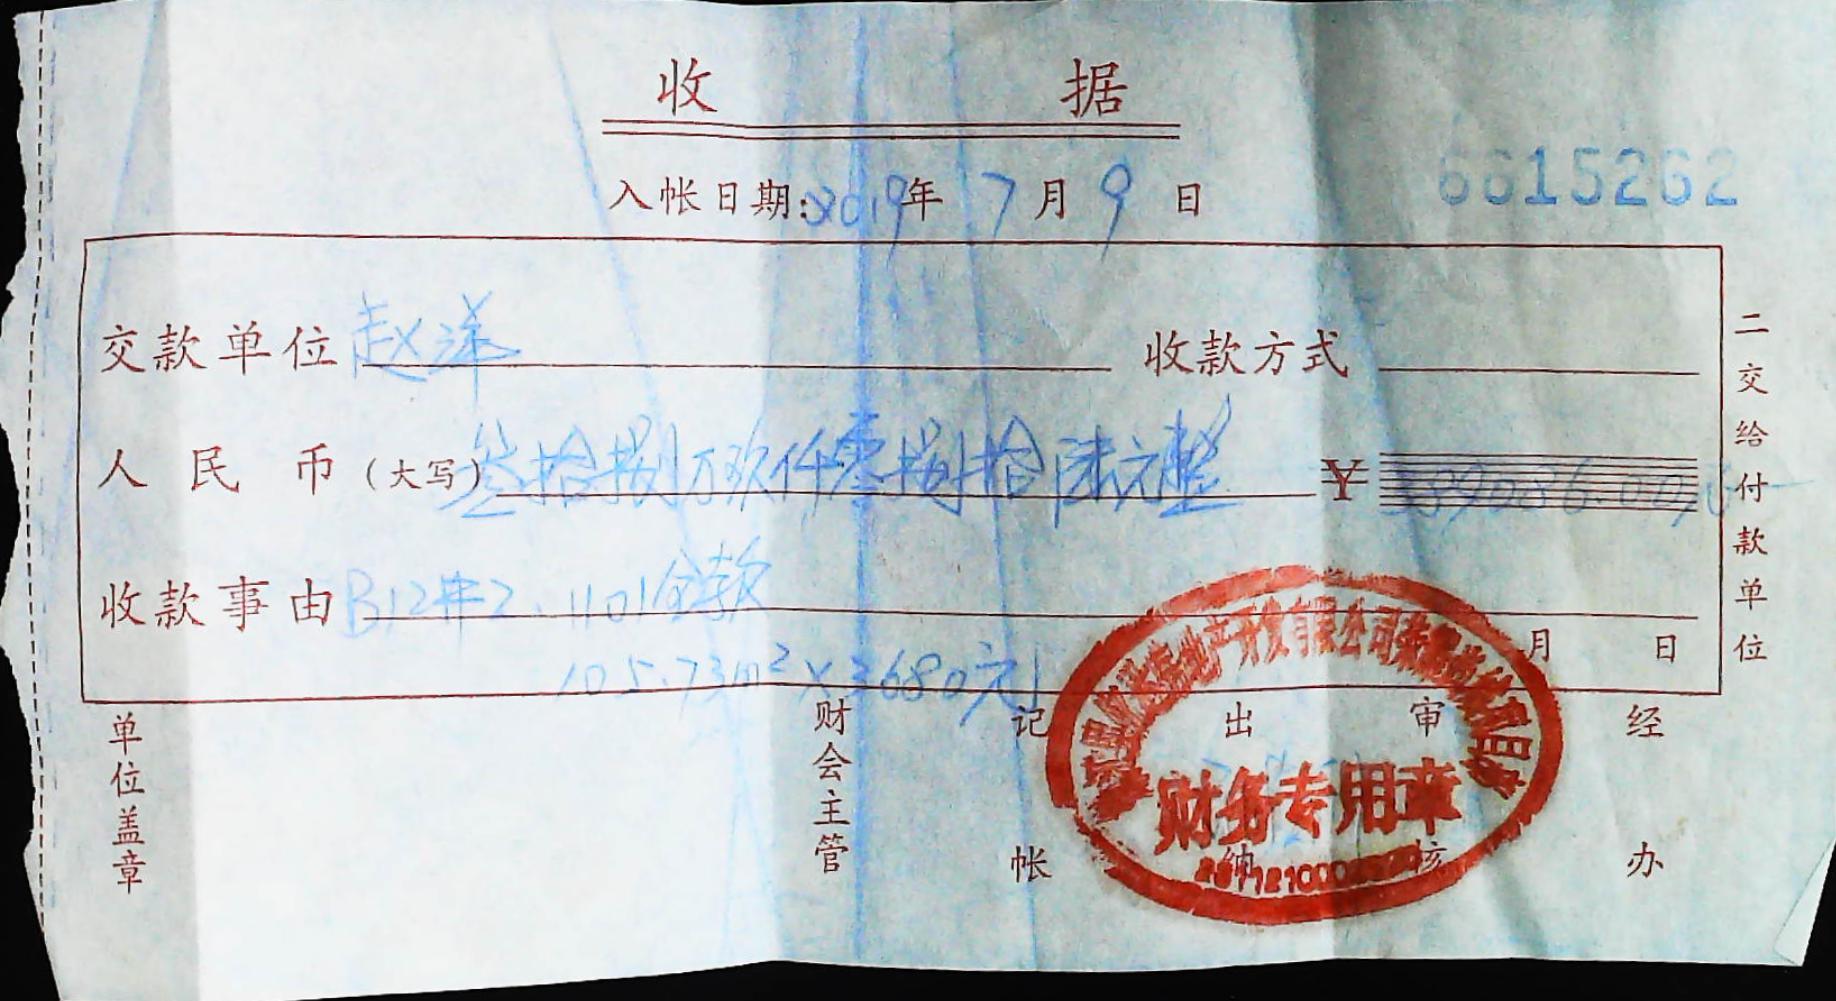 收据
入帐日期：2019年7月9日
6615262
交款单位 赵洋 收款方式
人民币（大写）叁拾捌万玖仟零捌拾陆元整 ￥389086.00
收款事由 B12#2.1101全款
105.73m²×3680元
月 日
二交给付款单位
单位盖章 财会主管 记帐 出纳 审核 经办
地产开发有限公司
财务专用章